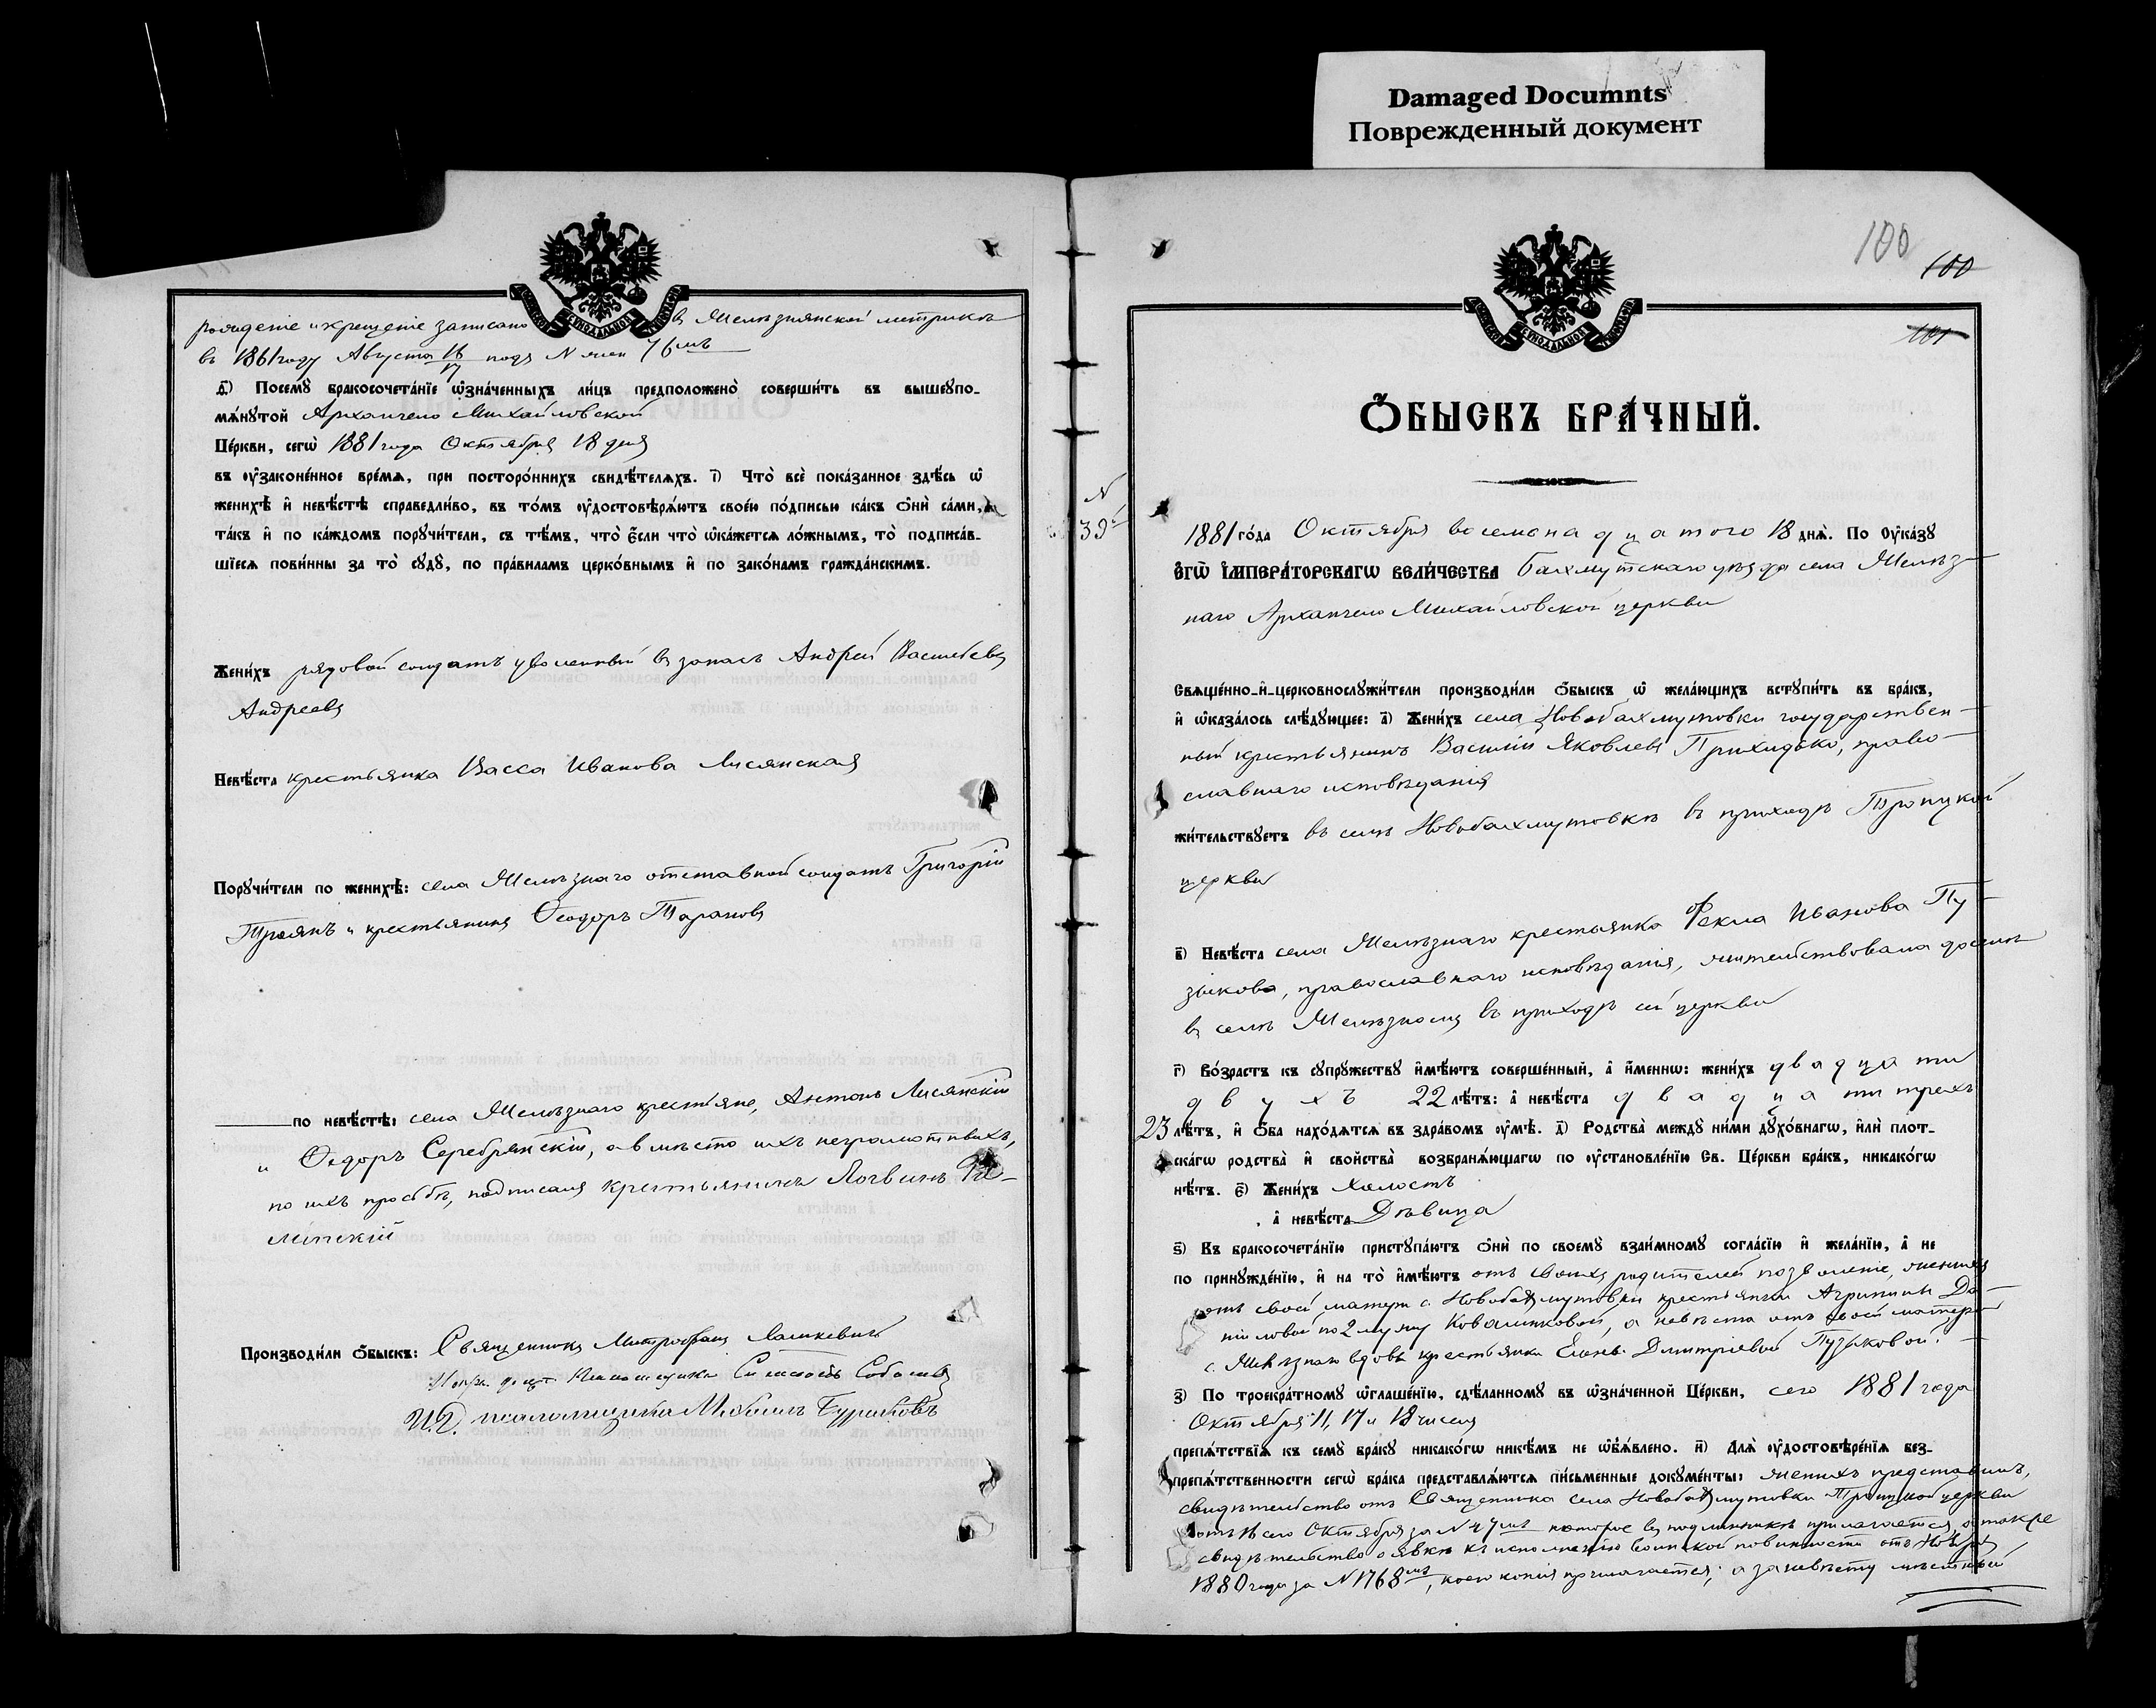 Damaged Documnts
Поврежденный документ
рождение и крещение записано въ Желѣзнянской метрикѣ
въ 1861 году Августа 16/17 подъ № 76мъ
д҃) Посемꙋ̀ бракосочета́нїе ѡ҆зна́ченныхъ ли́цъ предположено̀ соверши́ть въ вышеꙋпо-
мѧ́нꙋтой Архангело Михайловской
Це́ркви, сегѡ̀ 1881 года Октября 18 дня
въ ᲂу҆законе́нное вре́мѧ, при посторо́ннихъ свидѣ́телѧхъ. і҃) Что̀ всѐ пока́занное здѣ́сь ѡ҆
женихѣ̀ и҆ невѣ́стѣ справедли́во, въ то́мъ ᲂу҆достовѣрѧ́ютъ свое́ю по́дписью ка́къ ѻ҆нѝ са́ми,
та́къ и҆ по ка́ждомъ порꙋчи́тели, съ тѣ́мъ, что̀ є҆́сли что̀ ѡ҆ка́жетсѧ ло́жнымъ, то̀ подписа́в-
шїесѧ пови́нны за то̀ сꙋдꙋ̀, по пра́виламъ церко́внымъ и҆ по зако́намъ гражда́нскимъ.
Жени́хъ рядовой солдатъ уволенный въ запасъ Андрей Васильевъ
Андреевъ
Невѣ́ста крестьянка Васса Иванова Лисянская
Порꙋчи́тели по женихѣ̀: села Желѣзнаго отставной солдатъ Григорій
Троянъ и крестьянинъ Ѳеодоръ Тарановъ
по невѣ́стѣ: села Желѣзнаго крестьяне, Антонъ Лисянскій
и Ѳедоръ Серебрянскій, а вмѣсто ихъ неграмотныхъ,
по ихъ просьбѣ, подписалъ крестьянинъ Логвинъ
Производи́ли ѻ҆́быскъ: Священникъ Митрофанъ Лашкевичъ
И.Д. псаломщика
100
100
101
Ѻ҆́БЫСКЪ БРА́ЧНЫЙ.
N
39й
1881 го́да Октября восемнадцатого 18 днѧ̀. По ᲂу҆ка́зꙋ
Є҆ГѠ̀ И҆МПЕРА́ТОРСКАГѠ ВЕЛИ́ЧЕСТВА Бахмутскаго уѣзда села Желѣз-
наго Архангело Михайловской церкви
Свѧще́нно-и҆-церковнослꙋжи́тели производи́ли ѻ҆́быскъ ѡ҆ жела́ющихъ встꙋпи́ть въ бра́къ,
и҆ ѡ҆каза́лось слѣ́дꙋющее: а҃) Жени́хъ села Новобахмутовки государствен-
ный крестьянинъ Василій Яковлевъ Приходько, право-
славнаго исповѣданія
жи́тельствꙋетъ въ селѣ Новобахмутовкѣ въ приходѣ Троицкой
церкви
в҃) Невѣ́ста села Желѣзнаго крестьянка Ѳекла Иванова Пу-
зыкова, православнаго исповѣданія, жительствовала доселѣ
въ селѣ Желѣзномъ въ приходѣ сей церкви
г҃) Во́зрастъ къ сꙋпрꙋ́жествꙋ и҆мѣ́ютъ соверше́нный, а҆ и҆́меннѡ: жени́хъ двадцати
двухъ 22 лѣ́тъ: а҆ невѣ́ста двадцати трехъ
23 лѣ́тъ, и҆ ѻ҆́ба нахо́дѧтсѧ въ здра́вомъ ᲂу҆мѣ̀. д҃) Родства̀ междꙋ ни́ми дꙋхо́внагѡ, и҆лѝ плот-
ска́гѡ родства̀ и҆ свойства̀ возбранѧ́ющагѡ по ᲂу҆становле́нїю Св. Це́ркви бра́къ, никако́гѡ
нѣ́тъ. є҃) Жени́хъ холостъ
, а҆ невѣ́ста Дѣвица
ѕ҃) Къ бракосочета́нїю пристꙋпа́ютъ ѻ҆нѝ по своемꙋ̀ взаи́мномꙋ согла́сїю и҆ жела́нїю, а҆ не
по принꙋжде́нїю, и҆ на то̀ и҆мѣ́ютъ отъ своихъ родителей позволеніе, женихъ
отъ своей матери с. Новобахмутовки крестьянки Агрипины Да-
ніиловой по 2 мужу Коваленковой, а невѣста отъ своей матери
с. Желѣзнаго вдовы крестьянки Елены Димитріевой Пузыковой.
з҃) По троекра́тномꙋ ѡ҆глаше́нїю, сдѣ́ланномꙋ въ ѡ҆зна́ченной Це́ркви, сего 1881 года
Октября 11, 17 и 18 числа
препѧ́тствїѧ къ семꙋ̀ бра́кꙋ никако́гѡ никѣ́мъ не ѡ҆б̾ѧ́влено. и҃) Длѧ̀ ᲂу҆достовѣре́нїѧ без-
препѧ́тственности сегѡ̀ бра́ка представлѧ́ютсѧ пи́сьменные докꙋме́нты: женихъ представилъ,
свидѣтельство отъ Священника села Новобахмутовки Троицкой церкви
отъ 16 сего Октября за № 47мъ которое въ подлинникѣ прилагается, а также
свидѣтельство о явкѣ къ исполненію воинской повинности отъ Ноября
1880 года за № 1768мъ, коего копія прилагается; а за невѣсту мѣстный